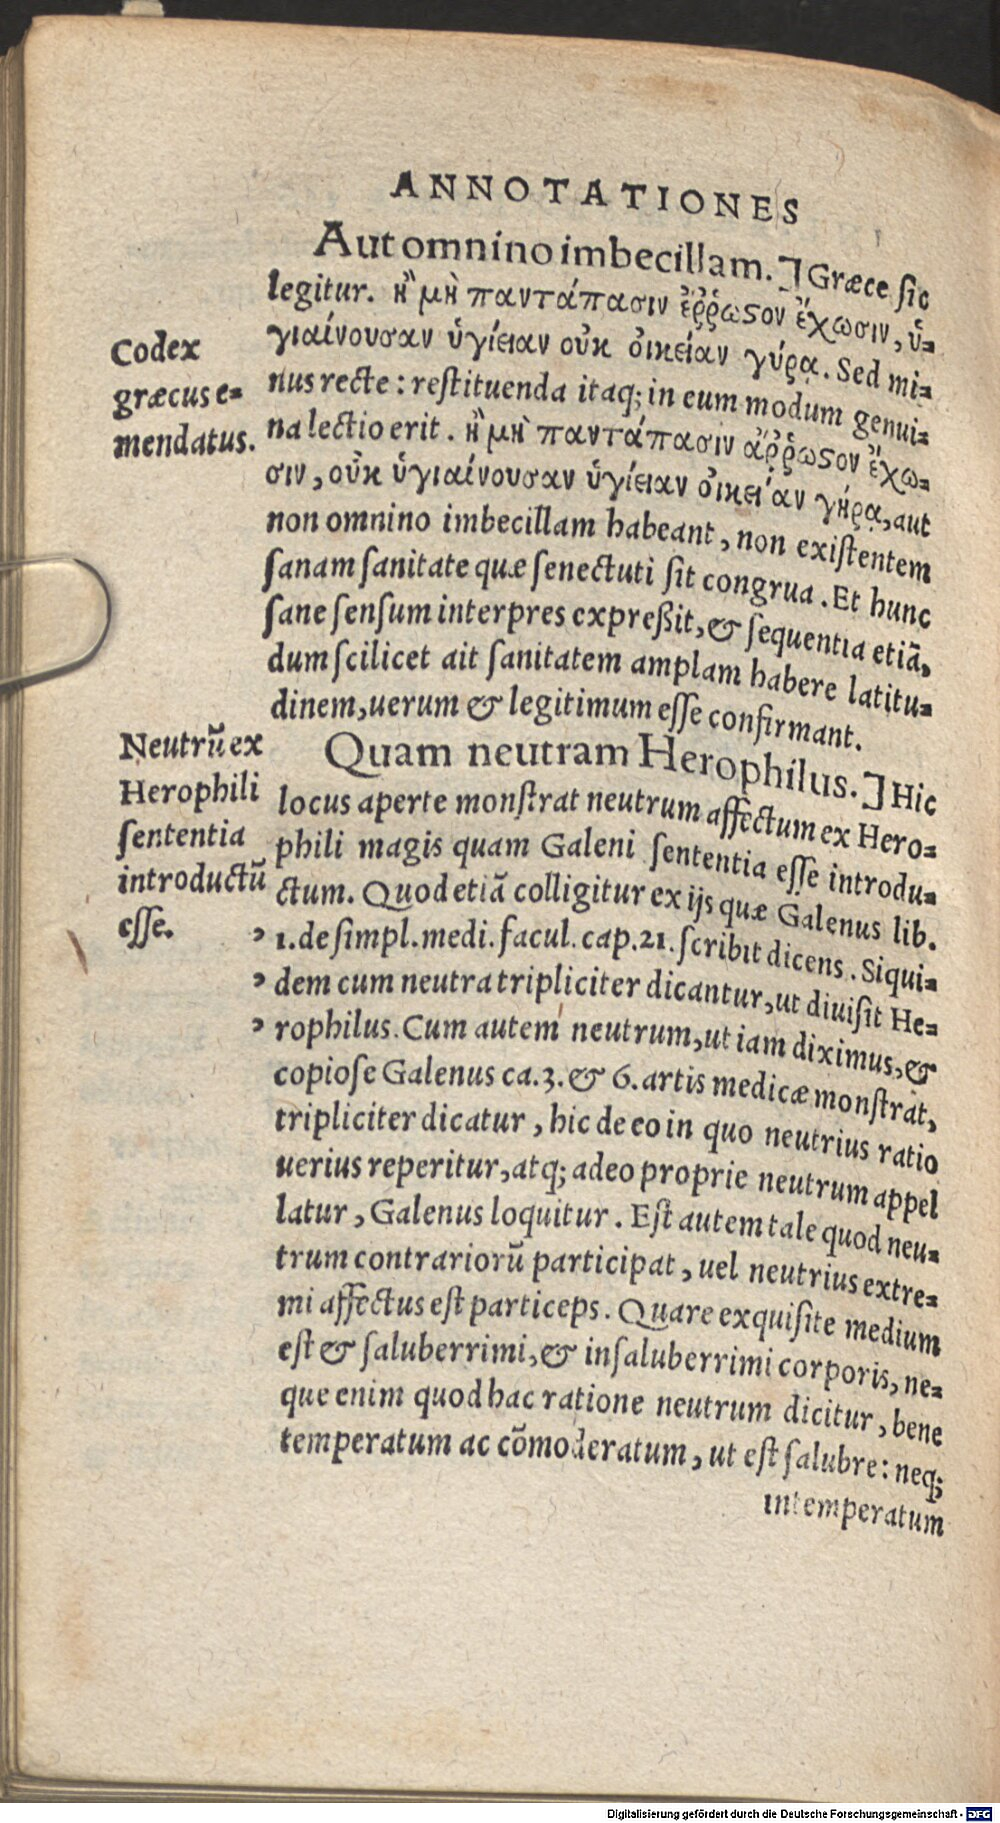 ANNOTATIONES
Aut omnino imbecillam.] Græce sic
legitur. ἢ μὴ παντάπασιν ἐῤῥωϛον ἔχωσιν, ὑ-
γιαίνουσαν ὑγίειαν οὐκ οἰκείαν γύρᾳ. Sed mi-
nus recte: restituenda itaq; in eum modum genui-
na lectio erit. ἢ μὴ παντάπασιν ἀῤῥωϛον ἔχω-
σιν, οὐκ ὑγιαίνουσαν ὑγίειαν οἰκείαν γήρᾳ, aut
non omnino imbecillam habeant, non existentem
sanam sanitate quæ senectuti sit congrua. Et hunc
sane sensum interpres expreßit, & sequentia etiā,
dum scilicet ait sanitatem amplam habere latitu-
dinem, uerum & legitimum esse confirmant.
Quam neutram Herophilus.] Hic
locus aperte monstrat neutrum affectum ex Hero-
phili magis quam Galeni sententia esse introdu-
ctum. Quod etiā colligitur ex ijs quæ Galenus lib.
, 1. de simpl. medi. facul. cap. 21. scribit dicens. Siqui-
, dem cum neutra tripliciter dicantur, ut diuisit He-
, rophilus. Cum autem neutrum, ut iam diximus, &
copiose Galenus ca. 3. & 6. artis medicæ monstrat,
tripliciter dicatur, hic de eo in quo neutrius ratio
uerius reperitur, atq; adeo proprie neutrum appel
latur, Galenus loquitur. Est autem tale quod neu-
trum contrariorū participat, uel neutrius extre-
mi affectus est particeps. Quare exquisite medium
est & saluberrimi, & insaluberrimi corporis, ne-
que enim quod hac ratione neutrum dicitur, bene
temperatum ac cōmoderatum, ut est salubre: neq;
intemperatum
Codex
græcus e-
mendatus.
Neutrū ex
Herophili
sententia
introductū
esse.
Digitalisierung gefördert durch die Deutsche Forschungsgemeinschaft - DFG